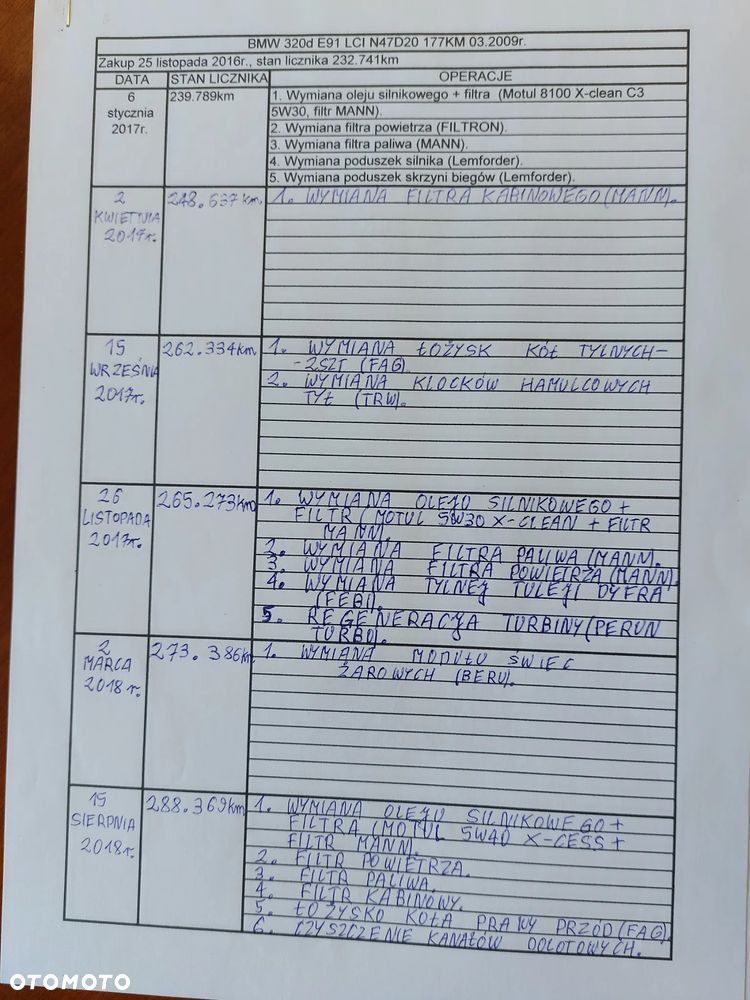 BMW 320d E91 LCI N47D20 177KM 03.2009r.
Zakup 25 listopada 2016r., stan licznika 232.741km
DATA STAN LICZNIKA OPERACJE
6 stycznia 2017r. 239.789km
1. Wymiana oleju silnikowego + filtra (Motul 8100 X-clean C3
5W30, filtr MANN).
2. Wymiana filtra powietrza (FILTRON).
3. Wymiana filtra paliwa (MANN).
4. Wymiana poduszek silnika (Lemforder).
5. Wymiana poduszek skrzyni biegów (Lemforder).
2 KWIETNIA 2017r. 248.637km.
1. WYMIANA FILTRA KABINOWEGO (MANN).
15 WRZEŚNIA 2017r. 262.334km
1. WYMIANA ŁOŻYSK KÓŁ TYLNYCH-
-2SZT (FAG)
2. WYMIANA KLOCKÓW HAMULCOWYCH
TYŁ (TRW).
26 LISTOPADA 2017r. 265.273km
1. WYMIANA OLEJU SILNIKOWEGO +
FILTR (MOTUL 5W30 X-CLEAN + FILTR
MANN).
2. WYMIANA FILTRA PALIWA (MANN).
3. WYMIANA FILTRA POWIETRZA (MANN).
4. WYMIANA TYLNEJ TULEJI DYFRA
(FEBI).
5. REGENERACJA TURBINY (PERUN
TURBO).
2 MARCA 2018r. 273.386km
1. WYMIANA MODUŁU ŚWIEC
ŻAROWYCH (BERU).
15 SIERPNIA 2018r. 288.369km
1. WYMIANA OLEJU SILNIKOWEGO +
FILTRA (MOTUL 5W40 X-CESS +
FILTR MANN).
2. FILTR POWIETRZA.
3. FILTR PALIWA.
4. FILTR KABINOWY.
5. ŁOŻYSKO KOŁA PRAWY PRZÓD (FAG)
6. CZYSZCZENIE KANAŁÓW DOLOTOWYCH.
OTOMOTO